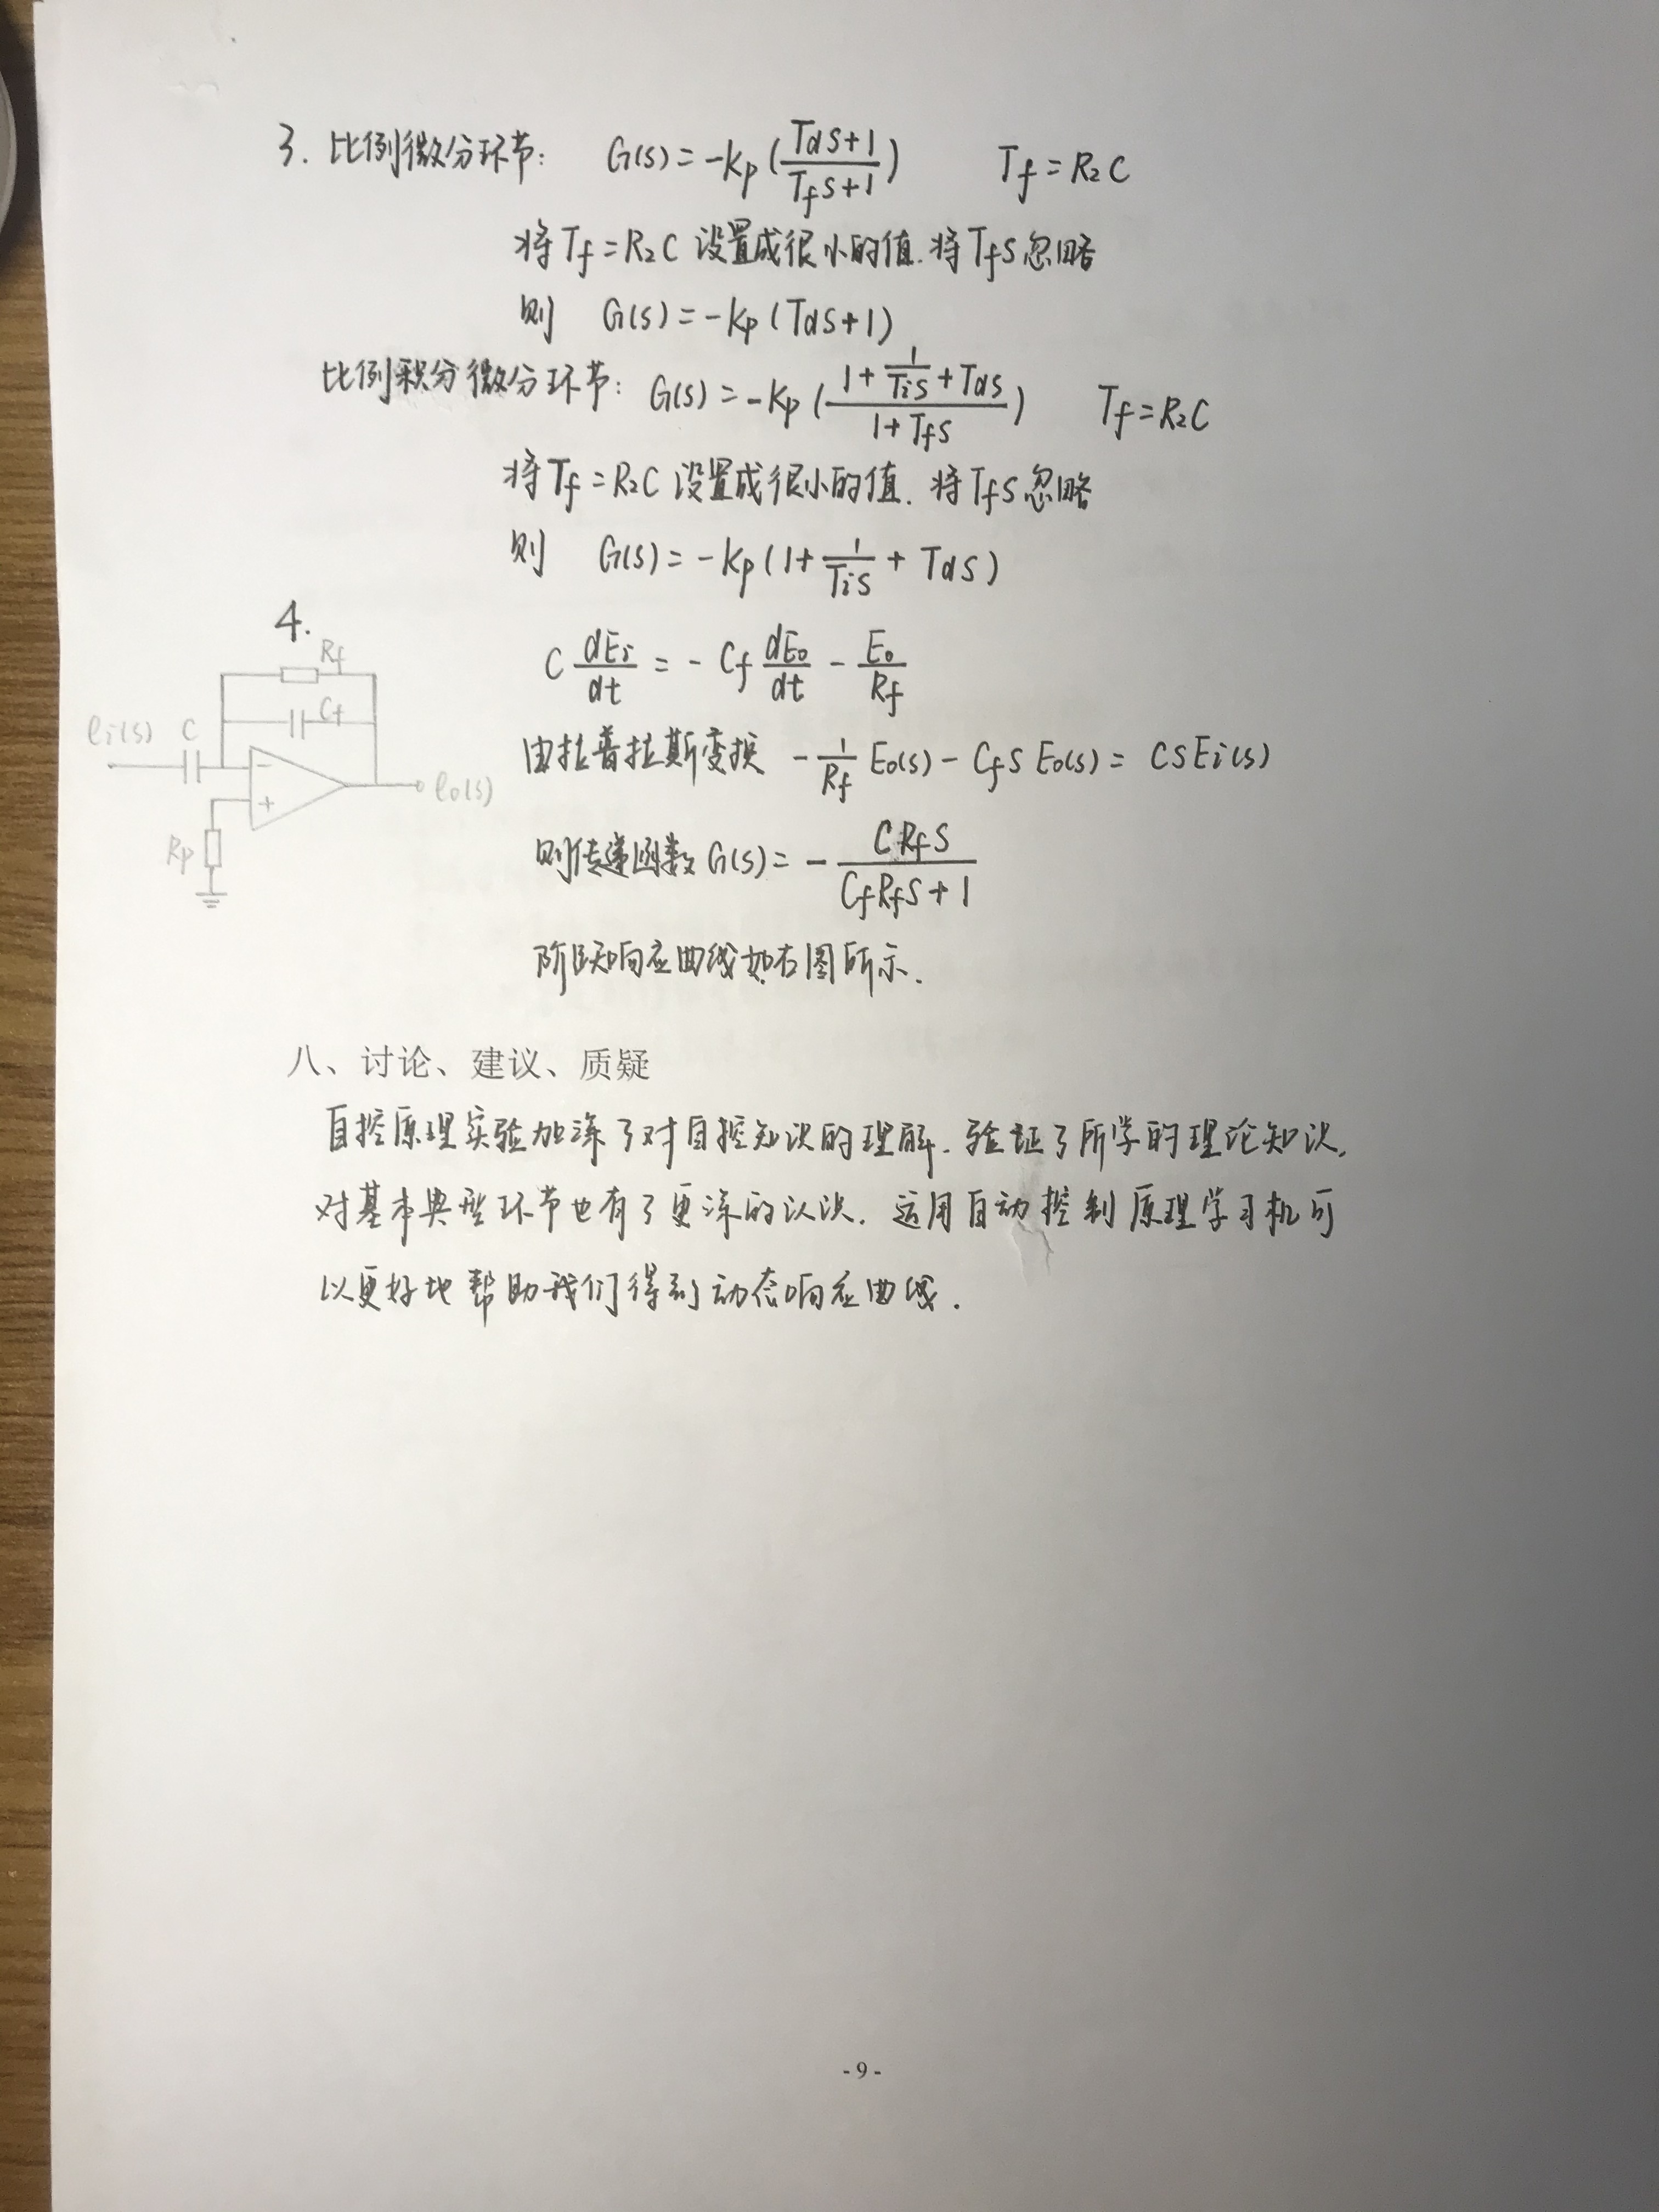 3. 比例微分环节: G(s)=-Kp(TdS+1/TfS+1) Tf=R₂C
将Tf=R₂C 设置成很小的值.将TfS忽略
则 G(s)=-Kp(TdS+1)
比例积分微分环节: G(s)=-Kp(1+1/TiS+TdS/1+TfS) Tf=R₂C
将Tf=R₂C 设置成很小的值. 将TfS忽略
则 G(s)=-Kp(1+1/TiS+TdS)
4.
Rf
Cf
C
ei(s)
-
+
eo(s)
Rp
C dEi/dt = - Cf dEo/dt - Eo/Rf
由拉普拉斯变换 -1/Rf Eo(s) - CfS Eo(s) = CSEi(s)
则传递函数G(s)= - CRfS/CfRfS+1
阶跃响应曲线如右图所示.
八、讨论、建议、质疑
自控原理实验加深了对自控知识的理解.验证了所学的理论知识,
对基本典型环节也有了更深的认识. 运用自动控制原理学习机可
以更好地帮助我们得到动态响应曲线.
-9-